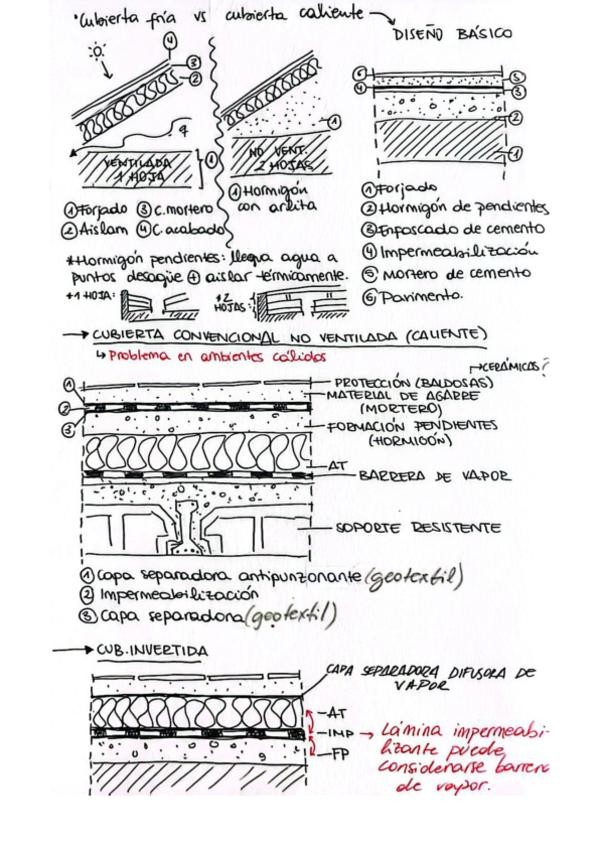 • Cubierta fría vs cubierta caliente
DISEÑO BÁSICO
4
3
2
q
1
VENTILADA
1 HOJA
① Forjado ③ C. mortero
② Aislam ④ C. acabado
1
NO VENT.
2 HOJAS
① Hormigón
con arlita
6
5
4
3
2
1
① Forjado
② Hormigón de pendientes
③ Enfoscado de cemento
④ Impermeabilización
⑤ Mortero de cemento
⑥ Pavimento.
*Hormigón pendientes: llegua agua a
puntos desagüe ⊕ aislar térmicamente.
*1 HOJA:
*2
HOJAS:
→ CUBIERTA CONVENCIONAL NO VENTILADA (CALIENTE)
↳ Problema en ambientes cálidos
CERÁMICAS?
1
2
3
PROTECCIÓN (BALDOSAS)
MATERIAL DE AGARRE
(MORTERO)
FORMACIÓN PENDIENTES
(HORMIGÓN)
AT
BARRERA DE VAPOR
SOPORTE RESISTENTE
① Capa separadora antipunzonante (geotextil)
② Impermeabilización
③ Capa separadora (geotextil)
→ CUB. INVERTIDA
CAPA SEPARADORA DIFUSORA DE
VAPOR
AT
IMP → Lámina impermeabi-
FP
lizante puede
considerarse barrera
de vapor.